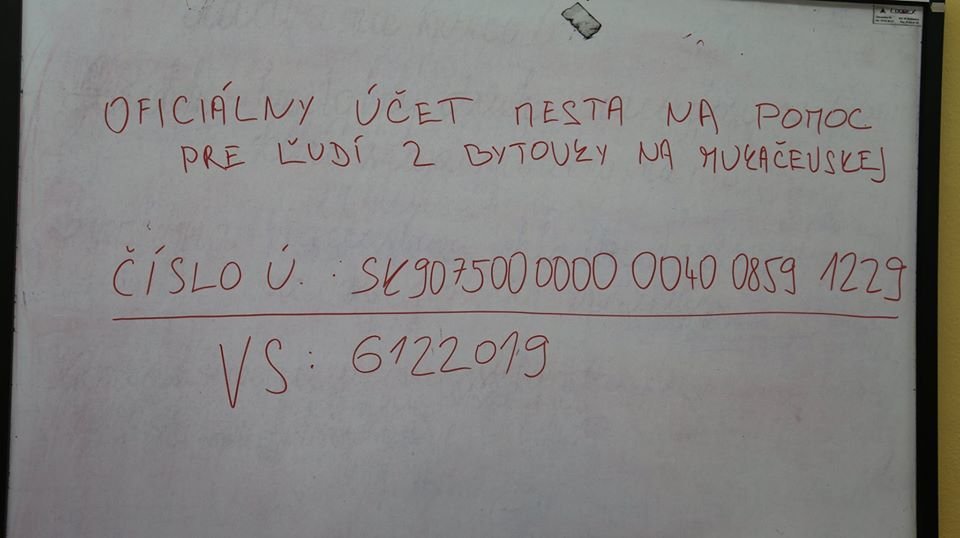 OFICIÁLNY ÚČET MESTA NA POMOC
PRE ĽUDÍ Z BYTOVKY NA MUKAČEVSKEJ
ČÍSLO Ú. : SK9075000000 0040 0859 1229
VS: 6122019